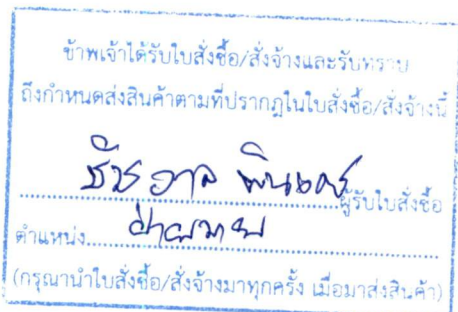 ข้าพเจ้าได้รับใบสั่งซื้อ/สั่งจ้างและรับทราบ
ถึงกำหนดส่งสินค้าตามที่ปรากฏในใบสั่งซื้อ/สั่งจ้างนี้
ธัชวาล ผู้รับใบสั่งซื้อ
ตำแหน่ง ฝ่ายขาย
(กรุณานำใบสั่งซื้อ/สั่งจ้างมาทุกครั้ง เมื่อมาส่งสินค้า)